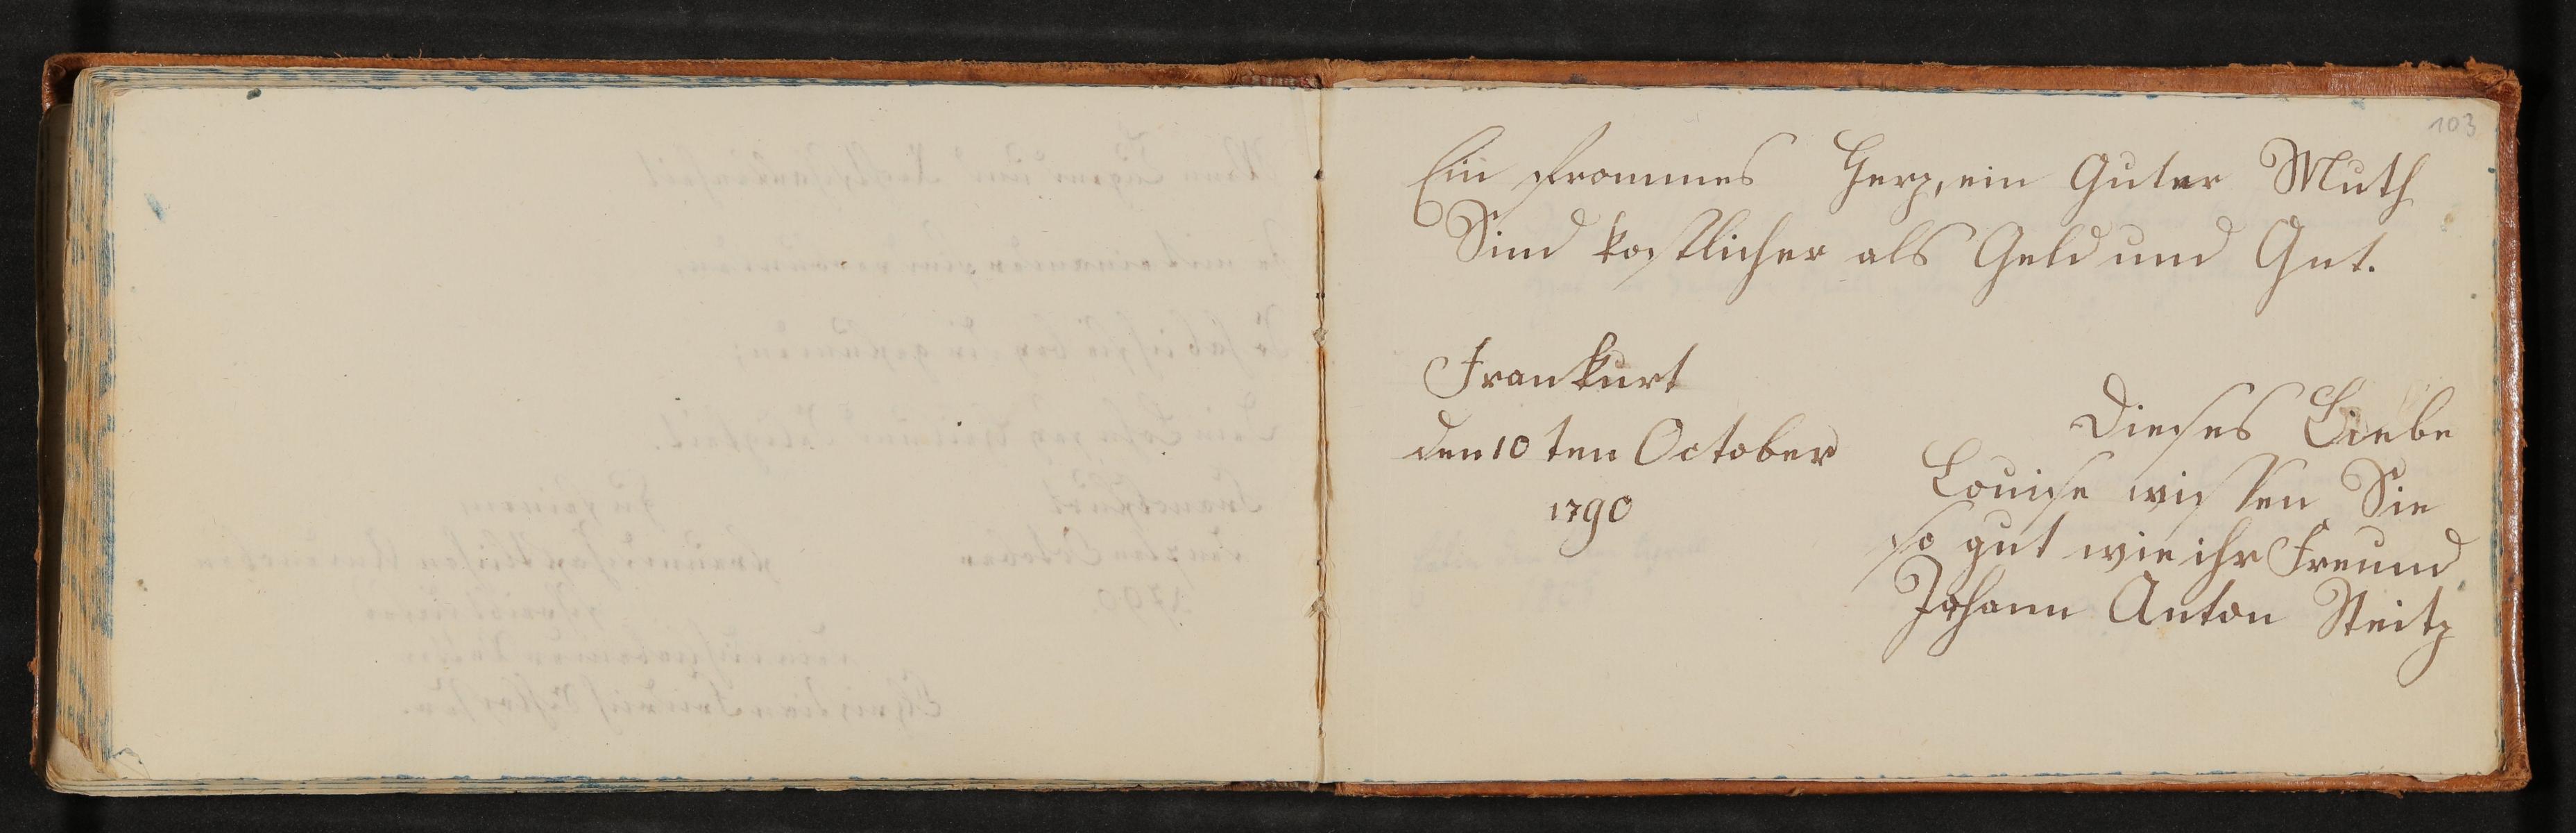 103
Ein frommes Herz, ein Guter Muth
Sind kostlicher als Geld und Gut.
Frankurt
den 10 ten October
1790
Dieses Liebe
Louise wissen Sie
so gut wie ihr Freund
Johann Anton Steitz